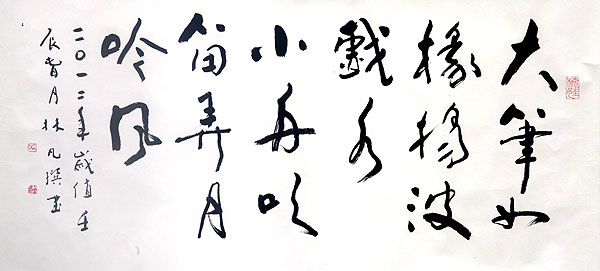 大筆如
椽揚波
戲水
小舟吹
笛弄月
吟風
二〇一二年歲值壬
辰月林凡撰書